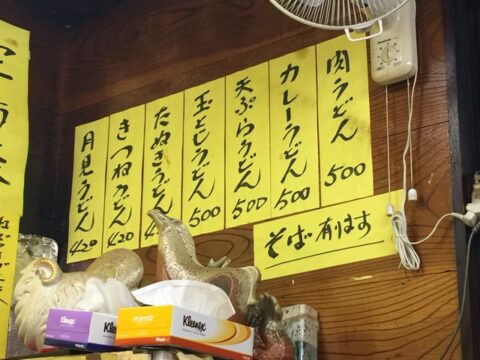 肉うどん
500
カレーうどん
500
天ぷらうどん
500
玉とじうどん
500
たぬきうどん
4
きつねうどん
420
月見うどん
420
そば有ります
Kleenex
Kleenex